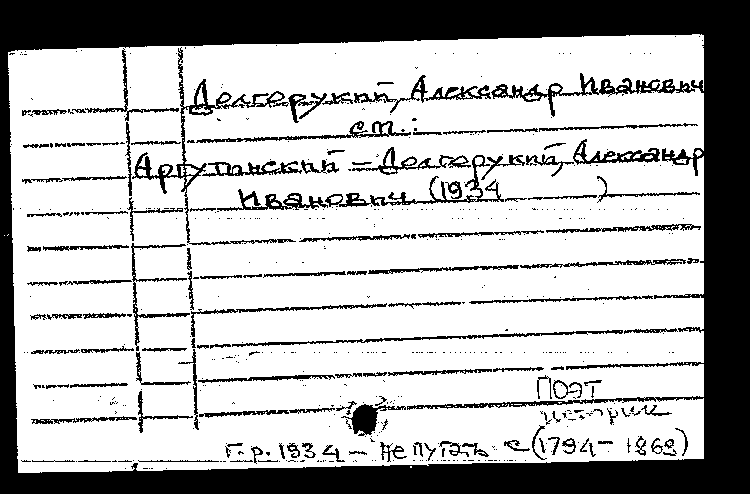 Долгорукий, Александр Иванович
см.:
Аргутинский – Долгорукий, Александр
Иванович (1934 )
ПОЭТ
историк
Г.р. 1934 – не путать с (1794 – 1868)